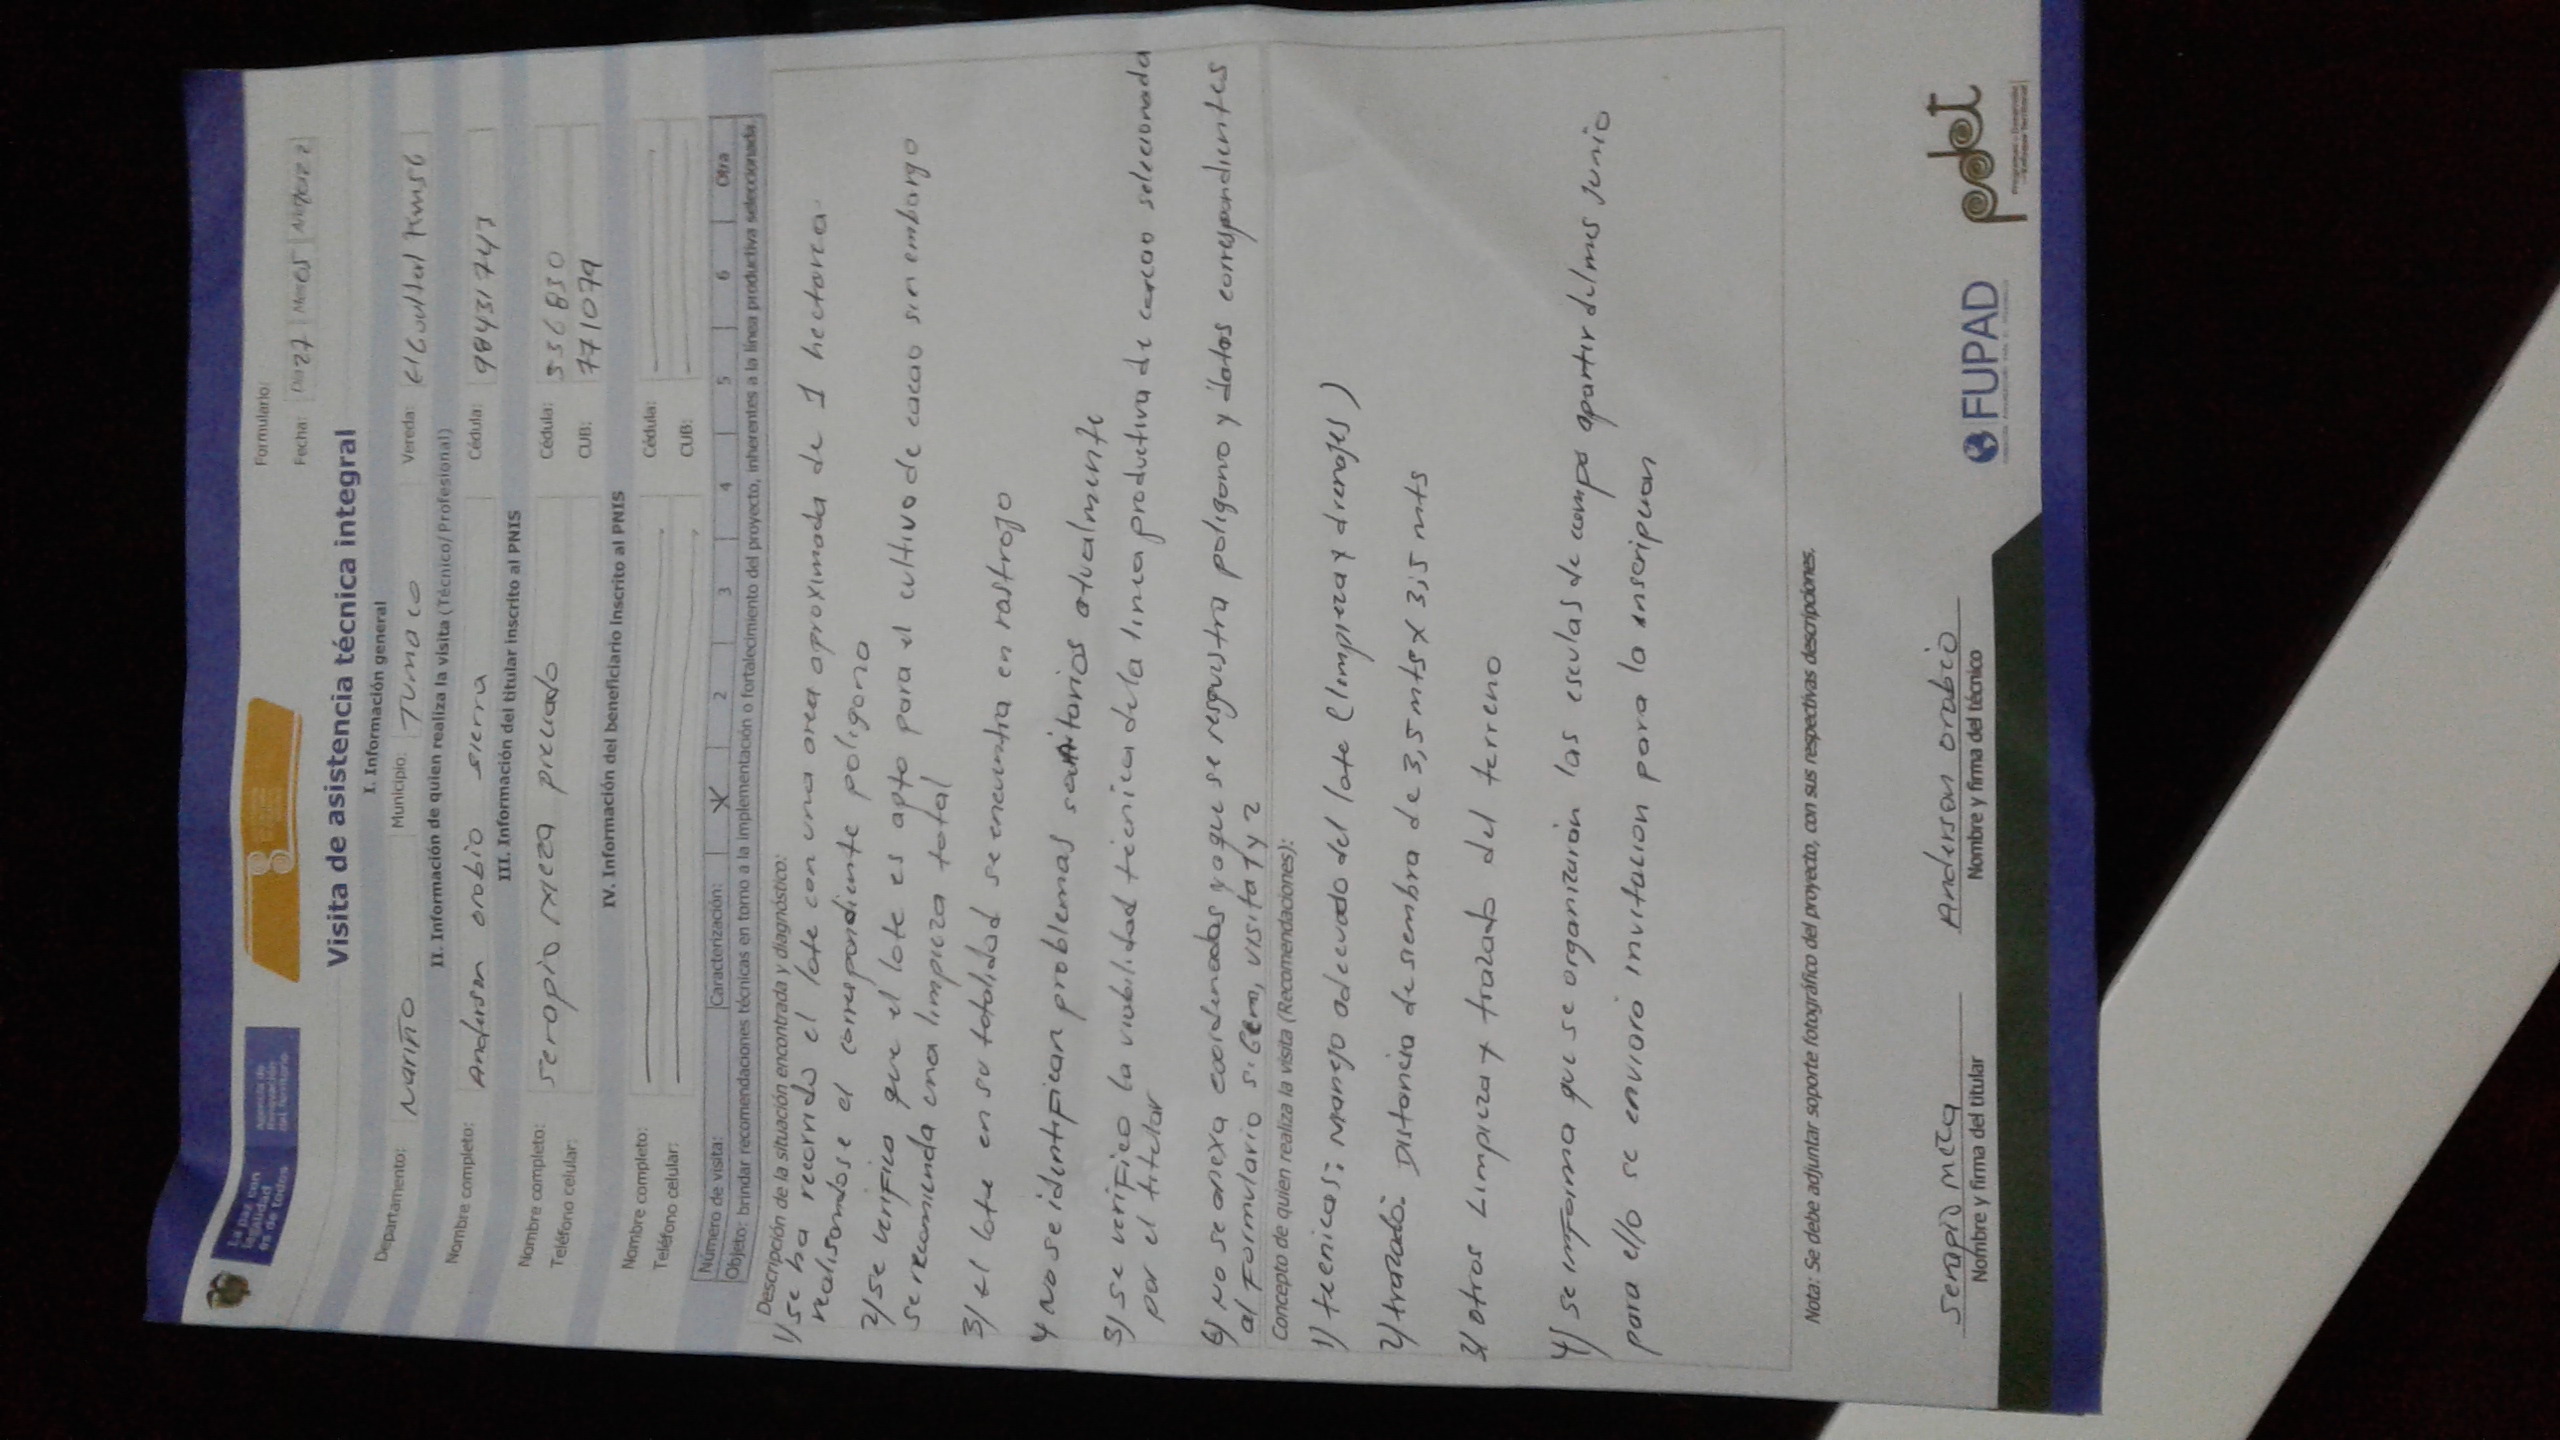 La paz con
legalidad
es de todos
Agencia de
Renovación
del Territorio
Formulario:
Fecha: Día 27 Mes 05 Año 2022
Visita de asistencia técnica integral
I. Información general
Departamento: Nariño Municipio: Tumaco Vereda:
II. Información de quien realiza la visita (Técnico/Profesional)
Nombre completo: Anderson orobio sierra Cédula: 98431743
III. Información del titular inscrito al PNIS
Nombre completo: serapio meza preciado Cédula: 536830
Teléfono celular: CUB: 771079
IV. Información del beneficiario inscrito al PNIS
Nombre completo: Cédula:
Teléfono celular: CUB:
Número de visita: Caracterización: X 2 3 4 5 6 Otra
Objeto: brindar recomendaciones técnicas en torno a la implementación o fortalecimiento del proyecto, inherentes a la línea productiva seleccionada.
Descripción de la situación encontrada y diagnóstico:
1) se ha recorrido el lote con una area aproximada de 1 hectarea
realisandose el correspondiente poligono
2) se verifico que el lote es apto para el cultivo de cacao sin embargo
se recomienda una limpieza total
3) el lote en su totalidad se encuentra en rastrojo
4) No se identifican problemas sanitarios atualmente
5) se verifico la viabilidad técnica de la linea productiva de cacao selecionada
por el titular
6) No se anexa coordenadas ya que se resgustra poligono y datos correspondientes
al formulario sigem, visita 1 y 2
Concepto de quien realiza la visita (Recomendaciones):
1) tecnicas: Manejo adecuado del lote (limpieza y drenajes)
2) trazado: Distancia de siembra de 3,5 mts x 3,5 mts
3) otros Limpieza y trazado del terreno
4) se informa que se organizaran las esculas de campo apartir del mes junio
para ello se enviara invitacion para la inscripcion
Nota: Se debe adjuntar soporte fotográfico del proyecto, con sus respectivas descripciones.
serapio meza Anderson orobio
Nombre y firma del titular Nombre y firma del técnico
FUPAD
pdet